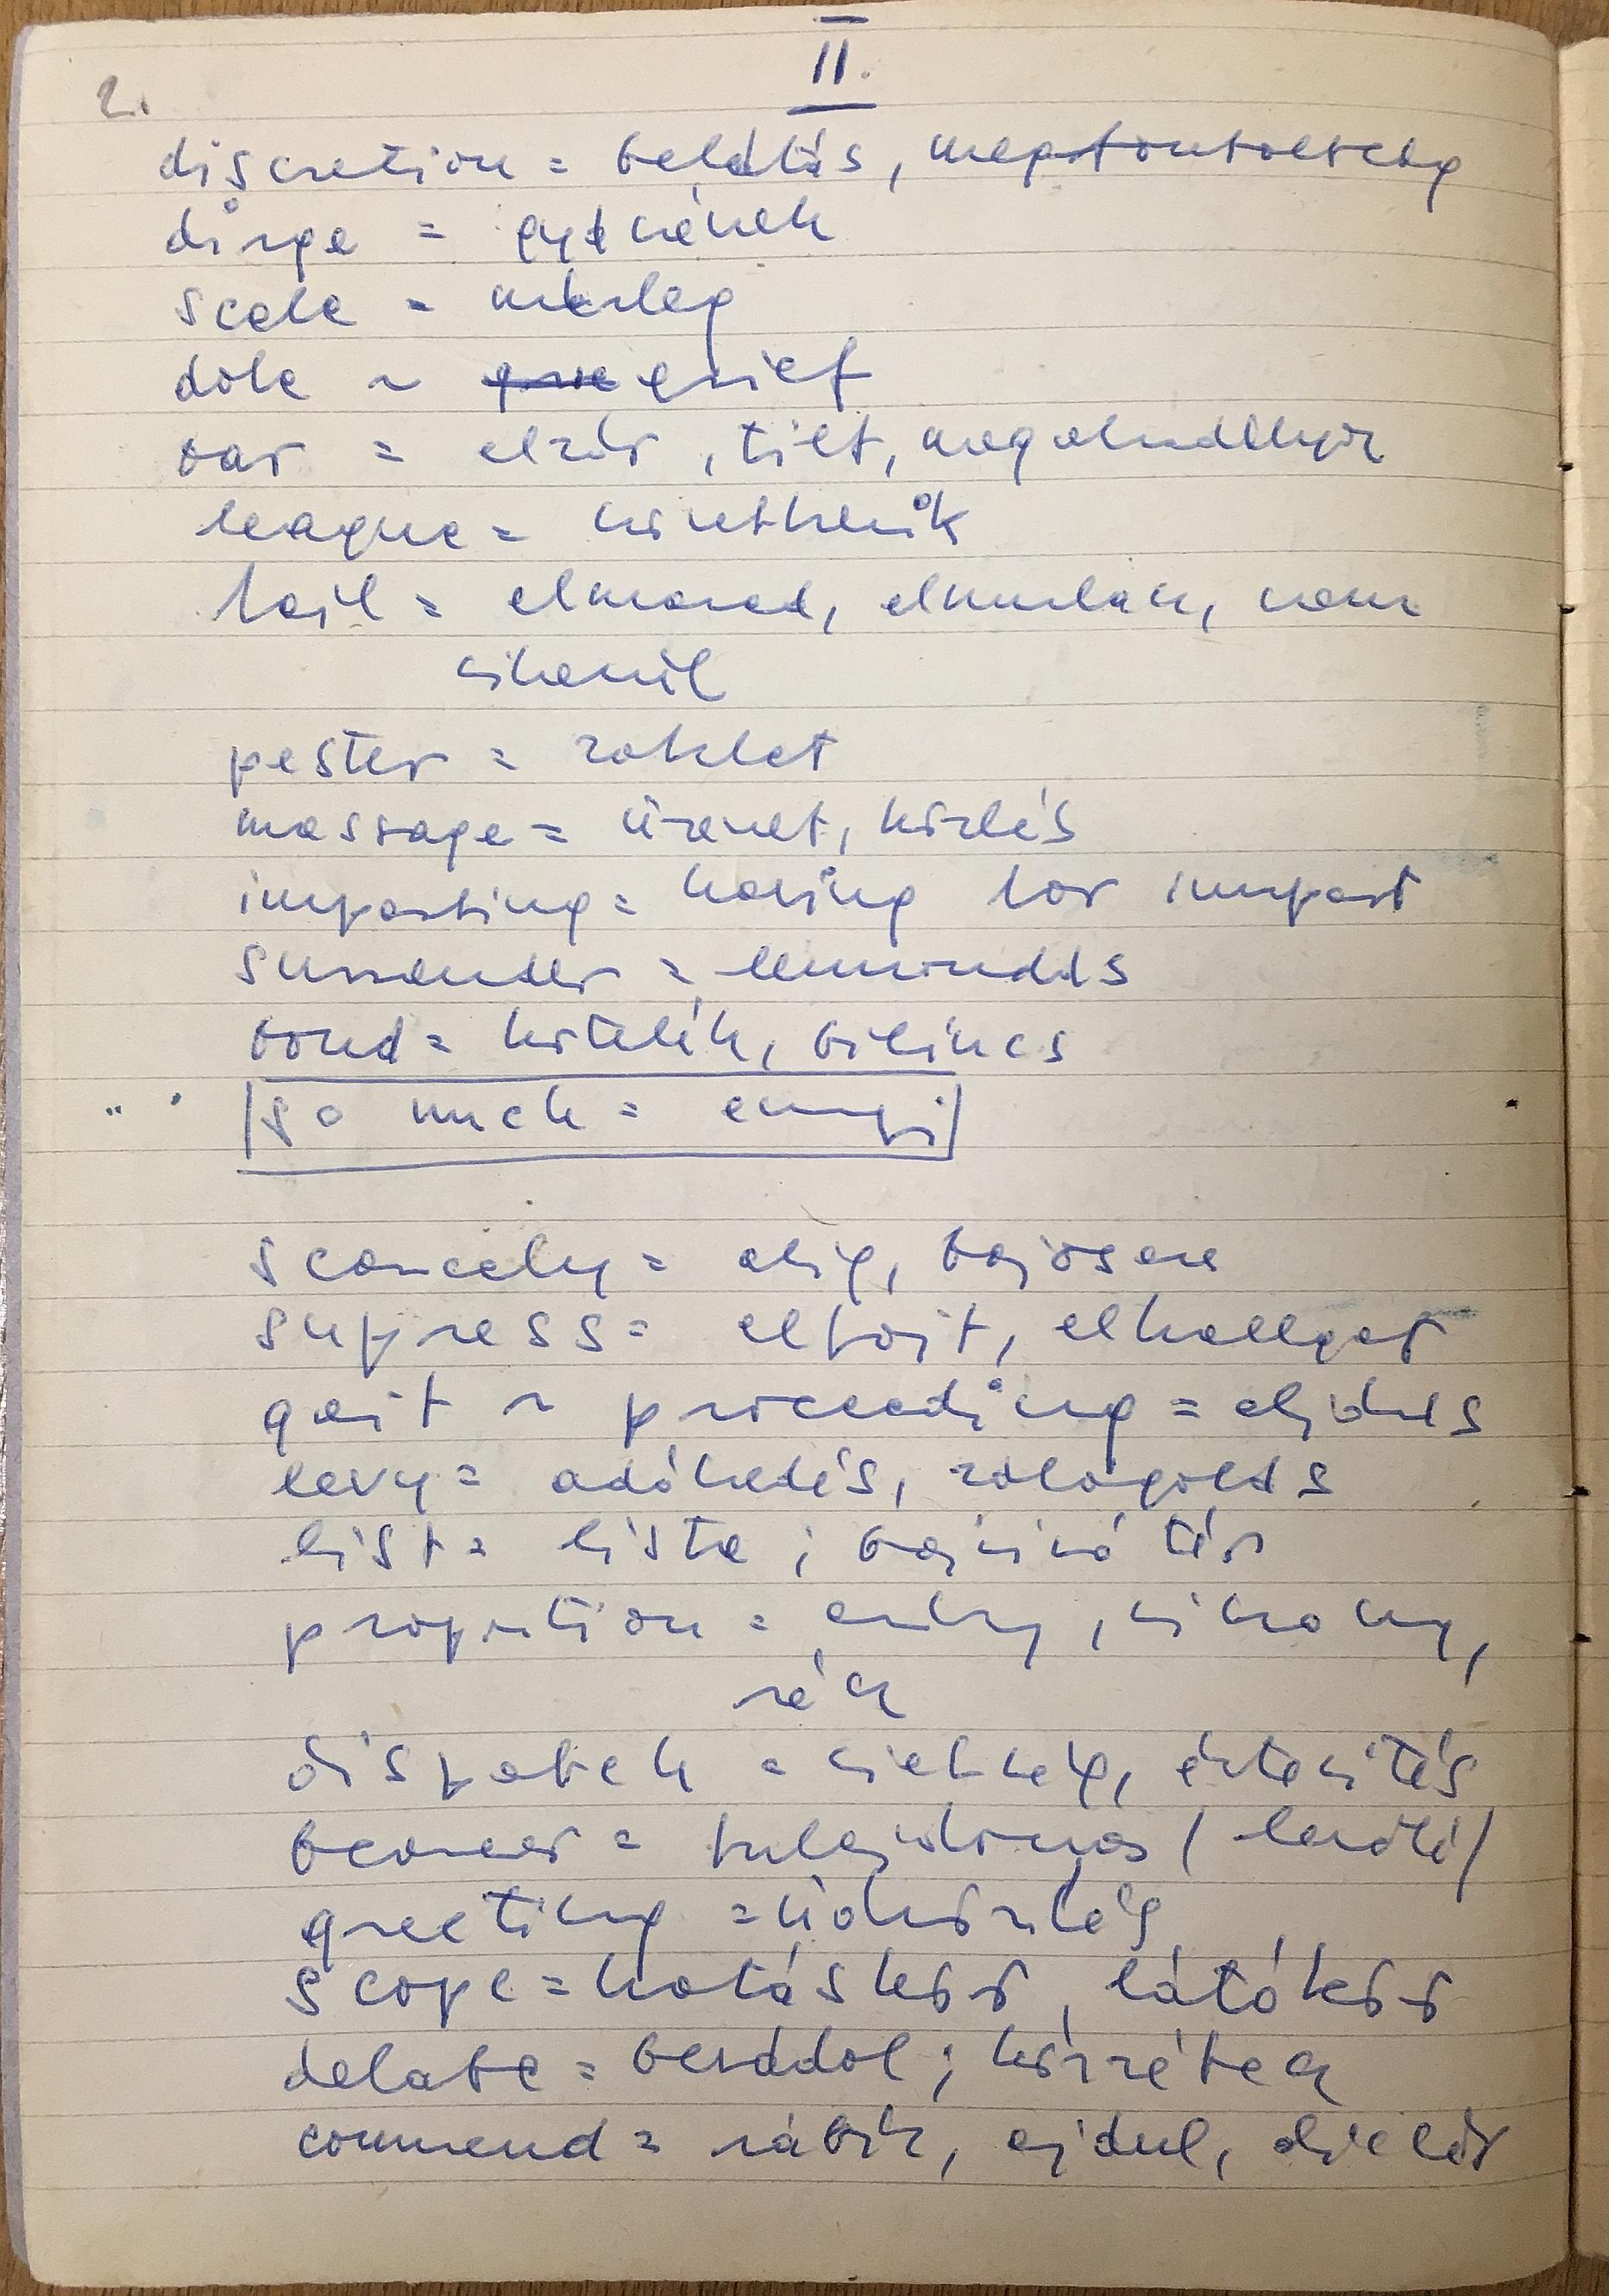 II.
2.
discretion = belátás, megfontoltság
dirge = gyászének
scale = mérleg
dole ~ grief
bar = elzár, tilt, megakadályoz
league = szövetkezik
fail = elmarad, elmulaszt, nem
sikerül
pester = zaklat
message = üzenet, közlés
importing = having for import
surrender = lemondás
bond = kötelék, bilincs
so much = ennyi
scarcely = alig, bajosan
supress = elfojt, elhallgat
gait ~ proceeding = eljárás
levy = adókedés, zálogolás
list = lista; bajvívó tér
proportion = arány, viszony,
rész
dispatch = sietség, értesítés
bearer = tulajdonos (levélé)
greeting = üdvözlés
scope = hatáskör, látókör
delate = bevádol; közzétesz
commend = rábíz, ajánl, dicsér